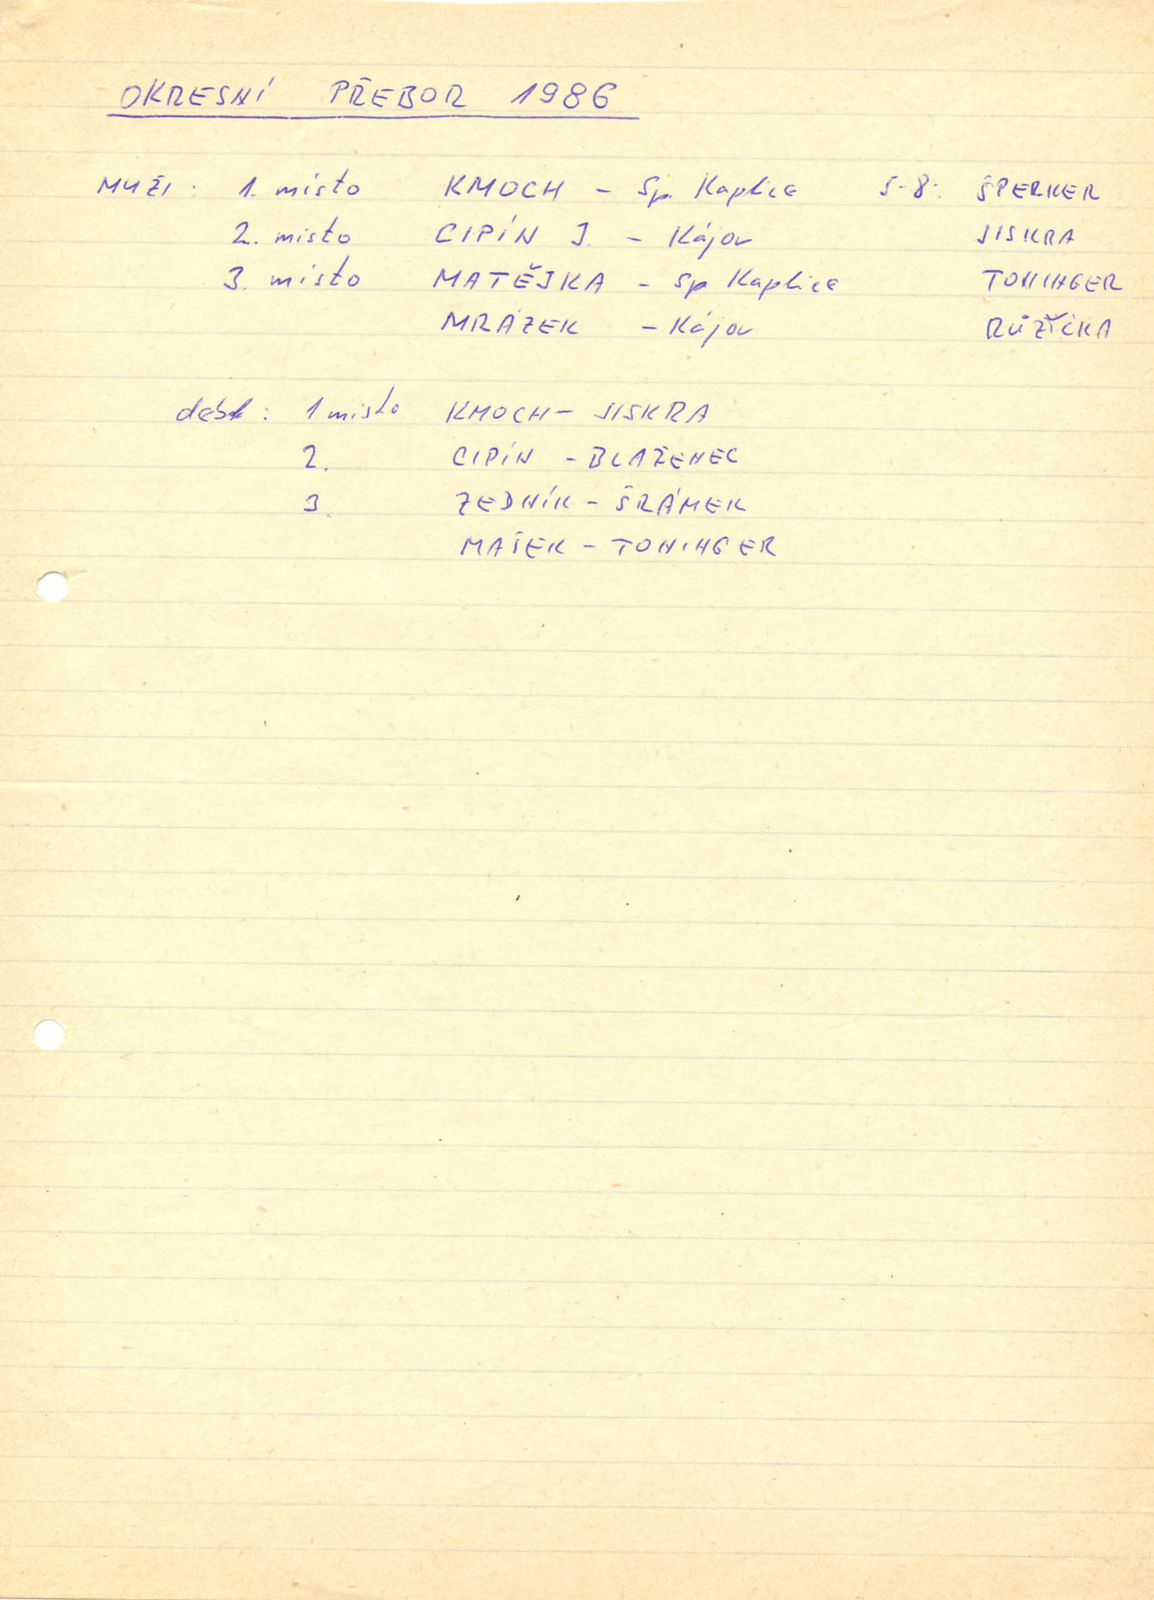 OKRESNÍ PŘEBOR 1986
MUŽI: 1. místo KMOCH - Sp. Kaplice 5-8: ŠPERKER
2. místo CIPÍN J. - Kájov JISKRA
3. místo MATĚJKA - Sp Kaplice TONINGER
MRÁZEK - Kájov RŮŽIČKA
debl: 1 místo KMOCH - JISKRA
2. CIPÍN - BLAŽENEC
3. ZEDNÍK - ŠRÁMEK
MAŠEK - TONINGER